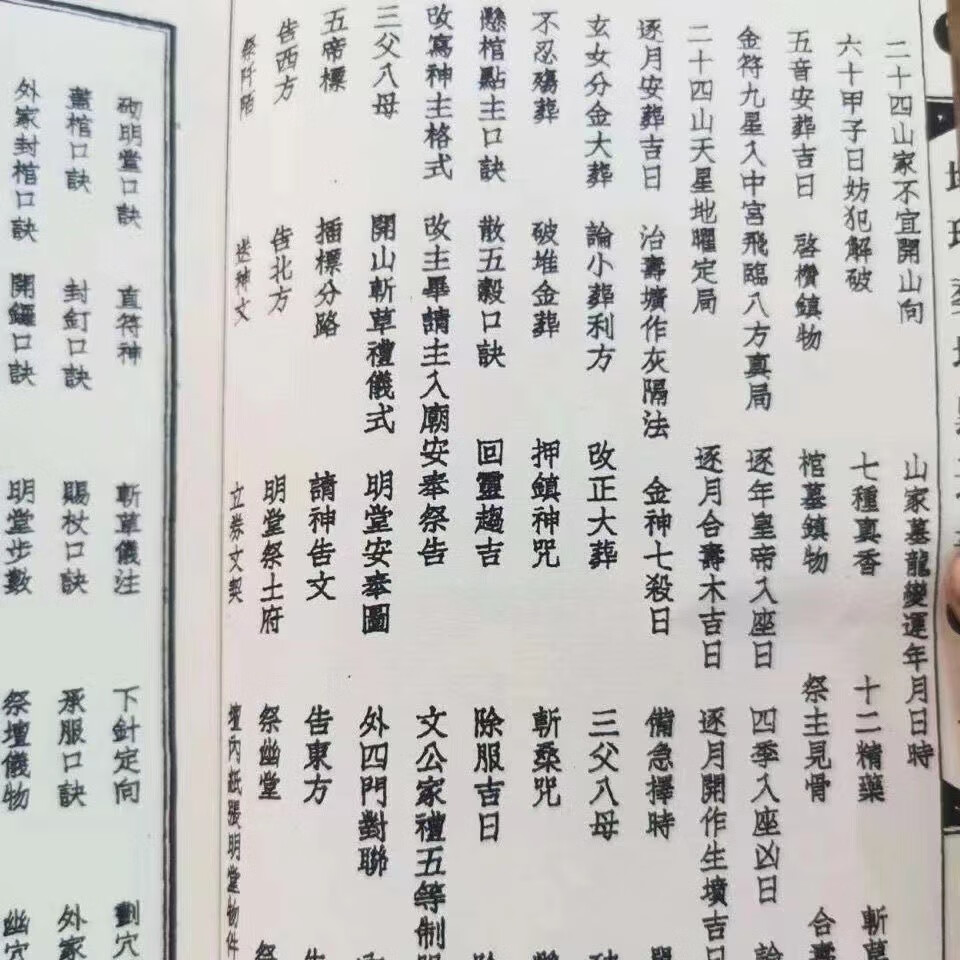 二十四山家不宜開山向 山家墓龍變運年月日時
六十甲子日妨犯解破 七種真香 十二精藥 斬草
五音安葬吉日 啓欑鎮物 棺墓鎮物 祭主見骨 合壽
金符九星入中宮飛臨八方真局 逐年皇帝入座日 四季入座凶日 論
二十四山天星地曜定局 逐月合壽木吉日 逐月開作生墳吉日
逐月安葬吉日 治壽壙作灰隔法 金神七殺日 備急擇時
玄女分金大葬 論小葬利方 改正大葬 三父八母 破
不忍殤葬 破堆金葬 押鎮神咒 斬桑咒
懸棺點主口訣 散五穀口訣 回靈趨吉 除服吉日 除
改寫神主格式 改主畢請主入廟安奉祭告 文公家禮五等制服
三父八母 開山斬草禮儀式 明堂安奉圖 外四門對聯
五帝標 插標分路 請神告文 告東方 告
告西方 告北方 明堂祭土府 祭幽堂 祭
祭阡陌 送神文 立券文契 壇內紙張明堂物件
砌明堂口訣 直符神 斬草儀注 下針定向 劃穴
蓋棺口訣 封釘口訣 賜杖口訣 承服口訣 外家
外家封棺口訣 開鑼口訣 明堂步數 祭壇儀物 幽穴